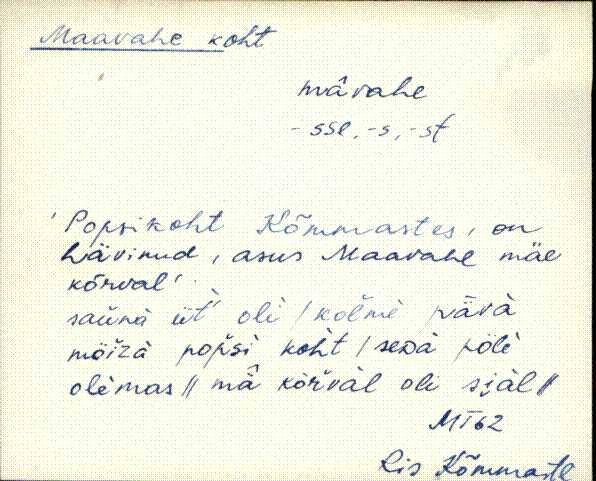 Maavahe koht
mâvahe
-sse, -s, -st
'Popsikoht Kõmmastes, on
hävinud, asus Maavahe mäe
kõrval'
saùnà üt̀ oli / kolmè pävà
möizà popsì koht / sedà põlè
olèmas // mâ kõrvàl oli själ //
MT62
Ris Kõmmaste